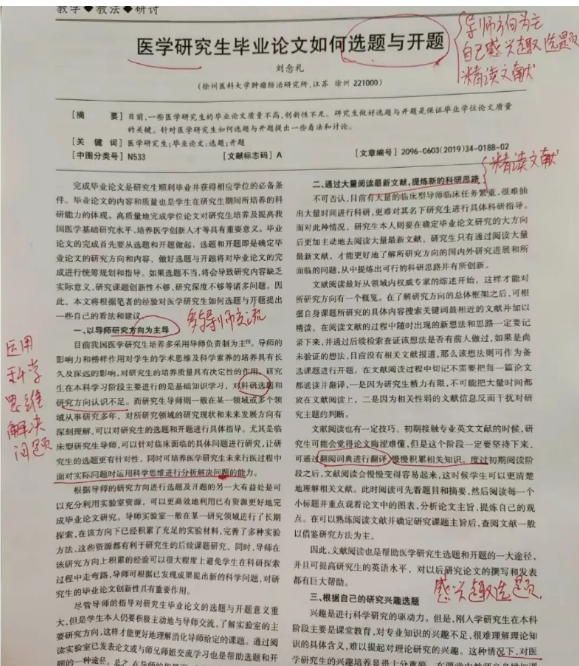 教学◆教法◆研讨
医学研究生毕业论文如何选题与开题
导师方向为主
自己感兴趣选题
精读文献
刘念礼
(徐州医科大学肿瘤防治研究所,江苏 徐州 221000)
[摘 要]目前,一些医学研究生的毕业论文质量不高,创新性不足。研究生做好选题与开题是保证毕业学位论文质量
的关键。针对医学研究生如何选题与开题提出一些看法和讨论。
[关 键 词]医学研究生;毕业论文;选题;开题
[中图分类号]N533 [文献标志码]A [文章编号]2096-0603(2019)34-0188-02
精读文献
完成毕业论文是研究生顺利毕业并获得相应学位的必备条
件。毕业论文的内容和质量也是学生在研究生期间所培养的科
研能力的体现。高质量地完成学位论文对研究生培养及提高我
国医学基础研究水平、培养医学创新人才等具有重要意义。毕业
论文的完成首先要从选题和开题做起,选题和开题即是确定毕
业论文的研究方向和内容。做好选题与开题将对毕业论文的完
成进行统筹规划和指导。如果选题不当,将会导致研究内容缺乏
实际意义、研究课题创新性不够、研究深度不够等诸多问题。因
此,本文将根据笔者的经验对医学研究生如何选题与开题提出
一些自己的看法和建议。
一、以导师研究方向为主导
多与导师交流
目前我国医学研究生培养多采用导师负责制为主。导师的
影响力和榜样作用对学生的学术思维及科学素养的培养具有长
久及深远的影响,对研究生的培养质量具有决定性的作用。研究
生在本科学习阶段主要进行的是基础知识学习,对科研选题和
研究方向认识不足。而研究生导师则一般在某一领域或多个领
域从事研究多年,对所研究领域的研究现状和未来发展方向有
深刻理解,可以对研究生的选题和开题进行具体指导。尤其是临
床型研究生导师,可以针对临床面临的具体问题进行研究,让研
究生的选题更有针对性。同时可培养医学研究生未来行医过程中
面对实际问题时运用科学思维进行分析解决问题的能力。
应用
科学
思维
解决
问题
根据导师的研究方向进行选题及开题的另一大有益处是可
以充分利用实验室资源。可以更高效地利用已有资源更好地完
成毕业论文研究。导师实验室一般在某一研究领域进行了长期
探索,在该方向下已经积累了充足的实验材料,完善了多种实验
方法,这些资源都有利于研究生的后续课题研究。同时,导师在
该研究方向上积累的经验可以很大程度上避免学生在科研探索
过程中走弯路,导师可根据已发现成果提出新的科学问题,对研
究生的毕业论文创新性具有重要作用。
尽管导师的指导对研究生毕业论文的选题与开题意义重
大,但是学生本人仍要积极主动地与导师交流,了解实验室的主
要研究方向,这样才能更好地理解消化导师给定的课题。通过阅
读实验室已发表论文或与师兄师姐交流或学习也是帮助选题和开
二、通过大量阅读最新文献,提炼新的科研思路
不可否认,目前有大量的临床型导师临床任务繁重,很难抽
出大量时间进行科研,更难对其名下研究生进行具体科研指导。
面对此种情况。研究生本人则要在确定毕业论文研究的大方向
后更加主动地去阅读大量最新文献。研究生只有通过阅读大量
最新文献,才能更好地了解所研究方向的国内外研究进展和所
面临的问题,从中提炼出可行的科研思路并有所创新。
文献阅读最好从领域内权威专家的综述开始,这样才能对
所研究方向有一个概览。在了解研究方向的总体框架之后,可根
据自身课题所研究的具体内容搜索关键词最相近的文献并加以
精读。在阅读文献的过程中随时出现的新想法和思路一定要记
录下来,并通过后续检索查证该想法是否有前人做过,如果是尚
未验证的想法,目前没有相关文献报道,那么该想法则可作为备
选课题进行开题。在文献阅读过程中切记不需要把每一篇论文
都泛读并翻译,一是因为研究生精力有限,不可能把大量时间都
放在文献阅读上,二是因为相关性弱的文献信息反而干扰对研
究主题的判断。
文献阅读也有一定技巧。初期接触专业英文文献的时候,研
究生可能会觉得论文晦涩难懂,但是这个阶段一定要坚持下来,
可通过翻阅词典进行翻译,慢慢积累相关知识。度过初期阅读阶
段之后,文献阅读会慢慢变得容易起来,这时候学生可以更清楚
地理解相关文献。此时阅读可先看题目和摘要,然后阅读每一个
小标题并重点观看论文中的图表,分析论文主旨,提炼自己的观
点。在可以熟练阅读文献并确定研究课题主旨后,查阅文献一般
以借鉴研究方法为主。
因此,文献阅读也是帮助医学研究生选题和开题的一大途径,
并且可提高研究生的英语水平,对以后研究论文的撰写和发表
都有巨大帮助。
感兴趣选题
三、根据自己的研究兴趣选题
兴趣是进行科学研究的驱动力。但是,刚入学研究生在本科
阶段主要是课堂教育,对专业知识的兴趣不足,很难理解理论知
识的具体含义,难以提起对理论研究的兴趣。这种情况下,对医